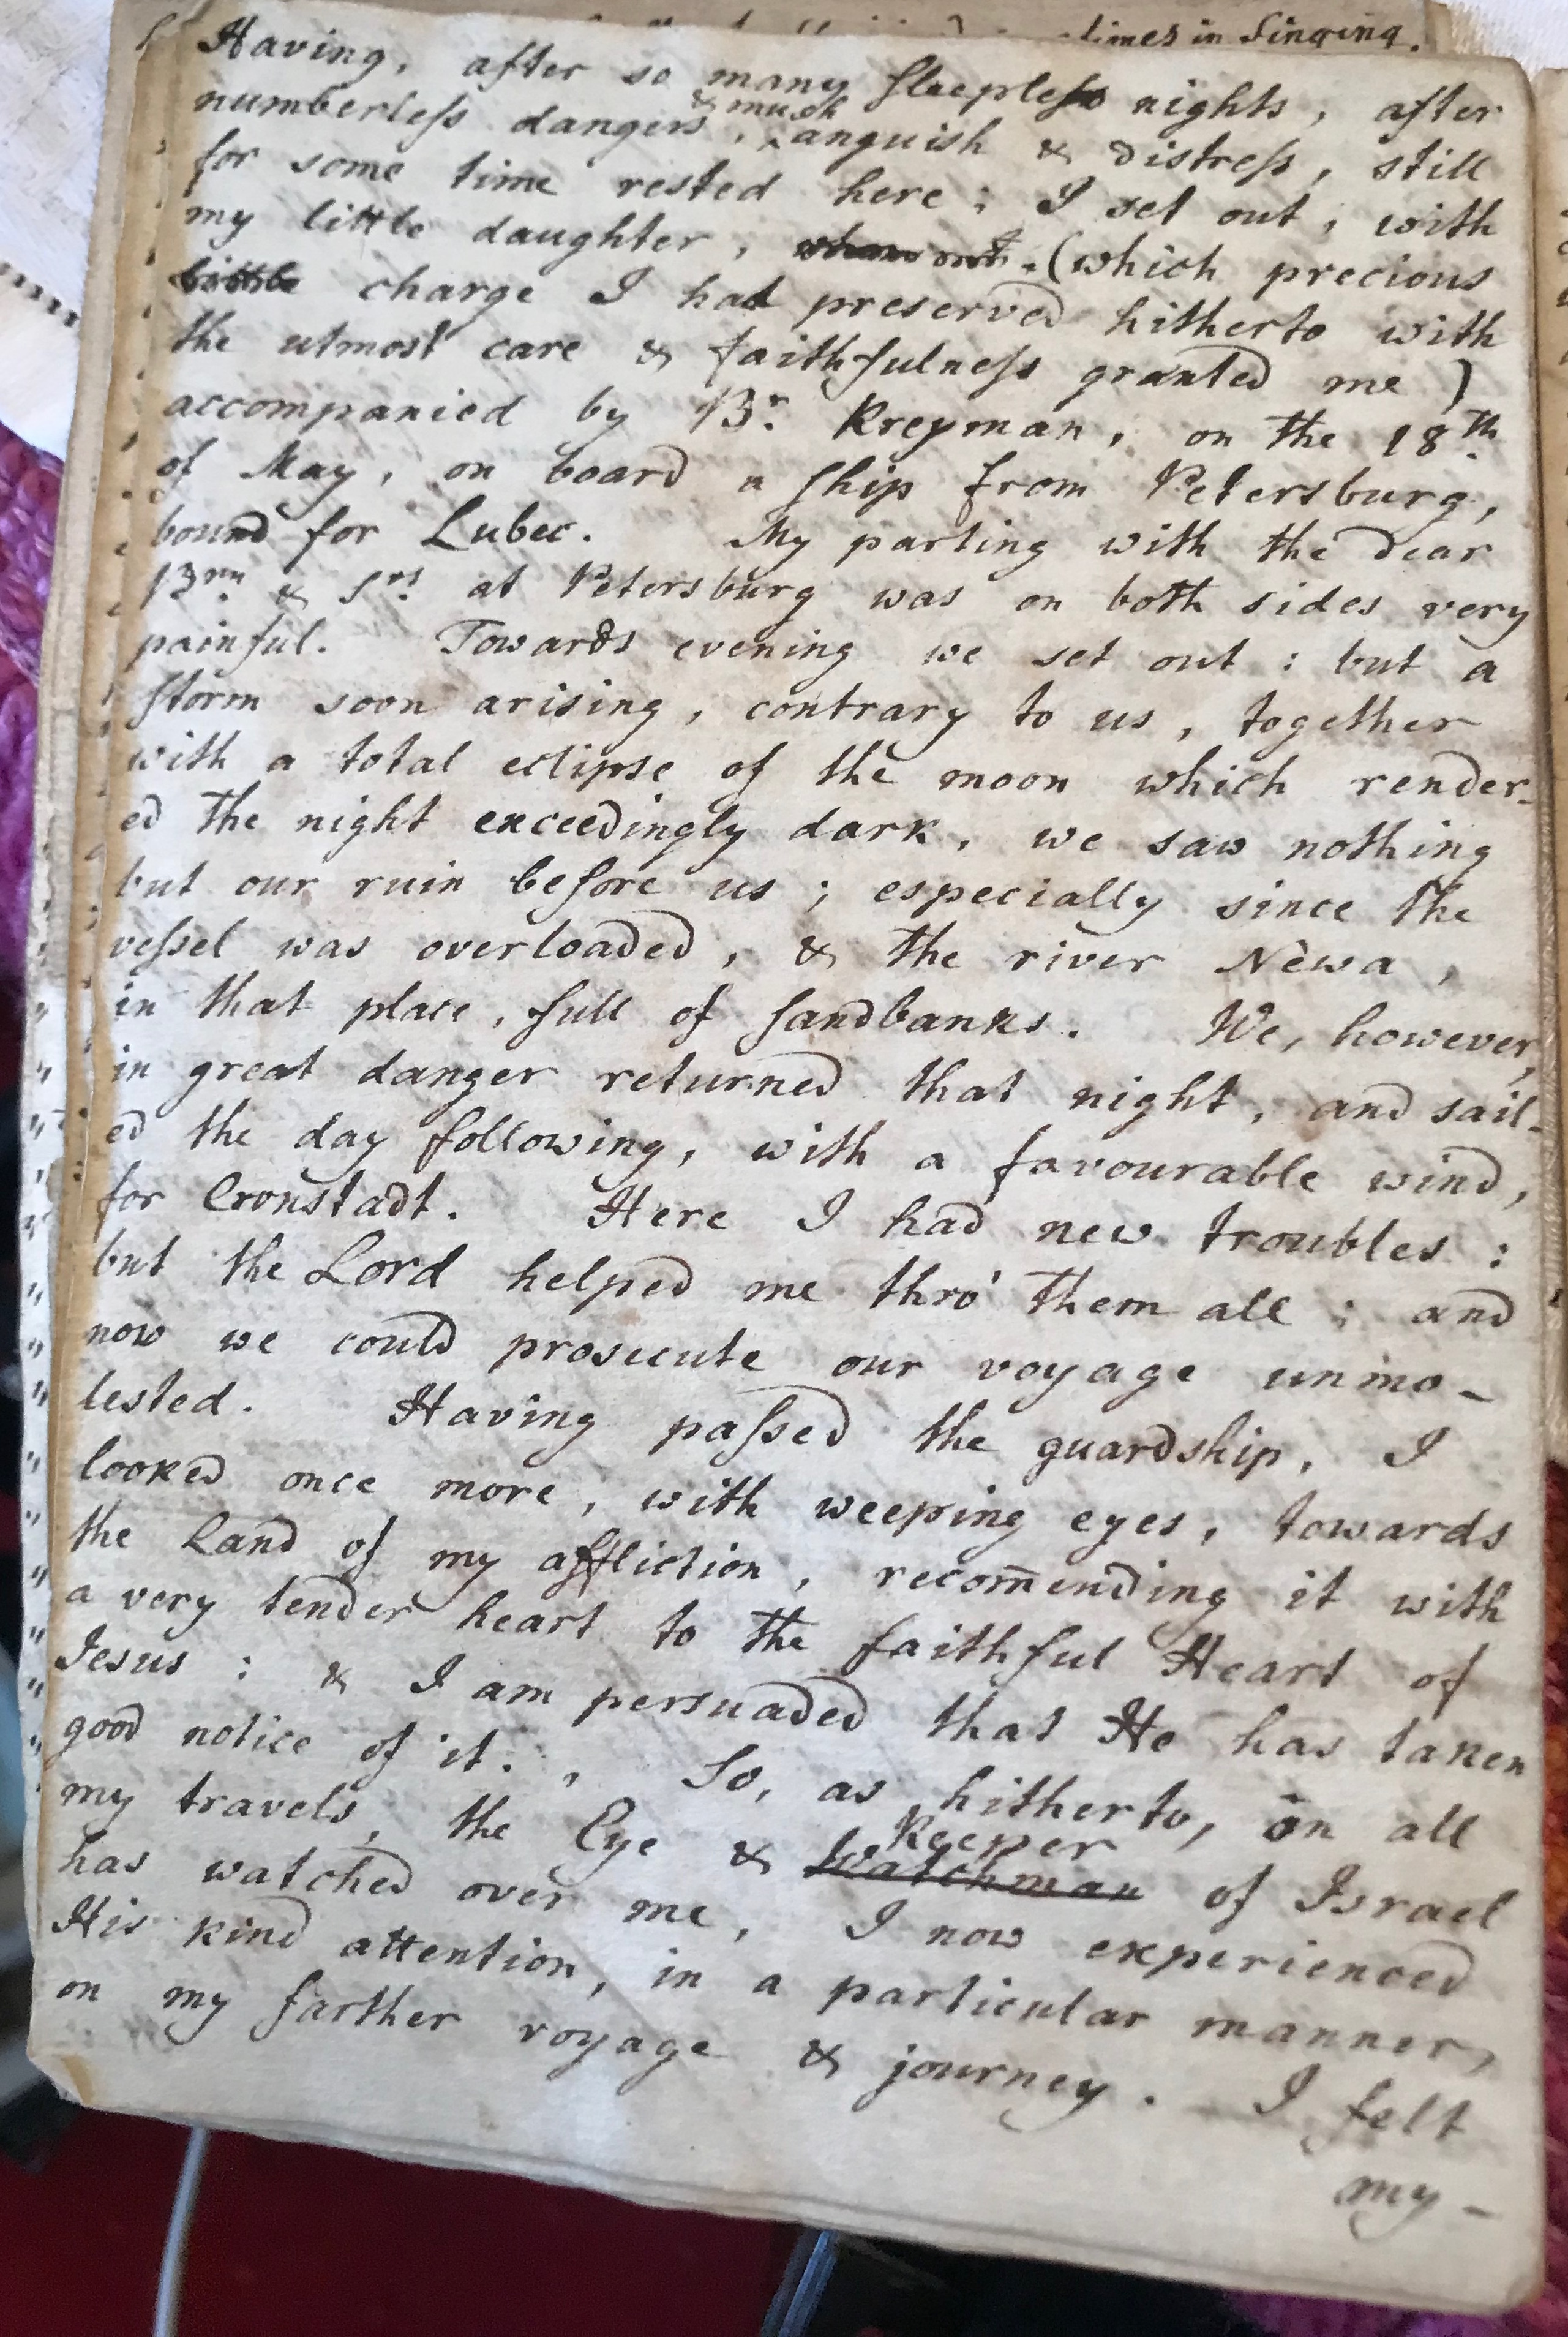 times in Singing.
Having, after so many sleepless nights, after
numberless dangers, & much anguish & distress, still
for some time rested here; I set out, with
my little daughter, (which precious
little charge I had preserved hitherto with
the utmost care & faithfulness granted me)
accompanied by Br. Kreyman, on the 18th
of May, on board a ship from Petersburg,
bound for Lubec. My parting with the dear
Brn & Srs at Petersburg was on both sides very
painful. Towards evening we set out: but a
storm soon arising, contrary to us, together
with a total eclipse of the moon which render-
ed the night exceedingly dark, we saw nothing
but our ruin before us; especially since the
vessel was overloaded, & the river Newa,
in that place, full of sandbanks. We, however,
in great danger returned that night, and sail-
ed the day following, with a favourable wind,
for Cronstadt. Here I had new troubles:
but the Lord helped me thro' them all; and
now we could prosecute our voyage unmo-
lested. Having passed the guardship, I
looked once more, with weeping eyes, towards
the Land of my affliction, recom̄ending it with
a very tender heart to the faithful Heart of
Jesus: & I am persuaded that He has taken
good notice of it. So, as hitherto, on all
my travels, the Eye & Watchman Keeper of Israel
has watched over me, I now experienced
His kind attention, in a particular manner,
on my farther voyage & journey. I felt
my-